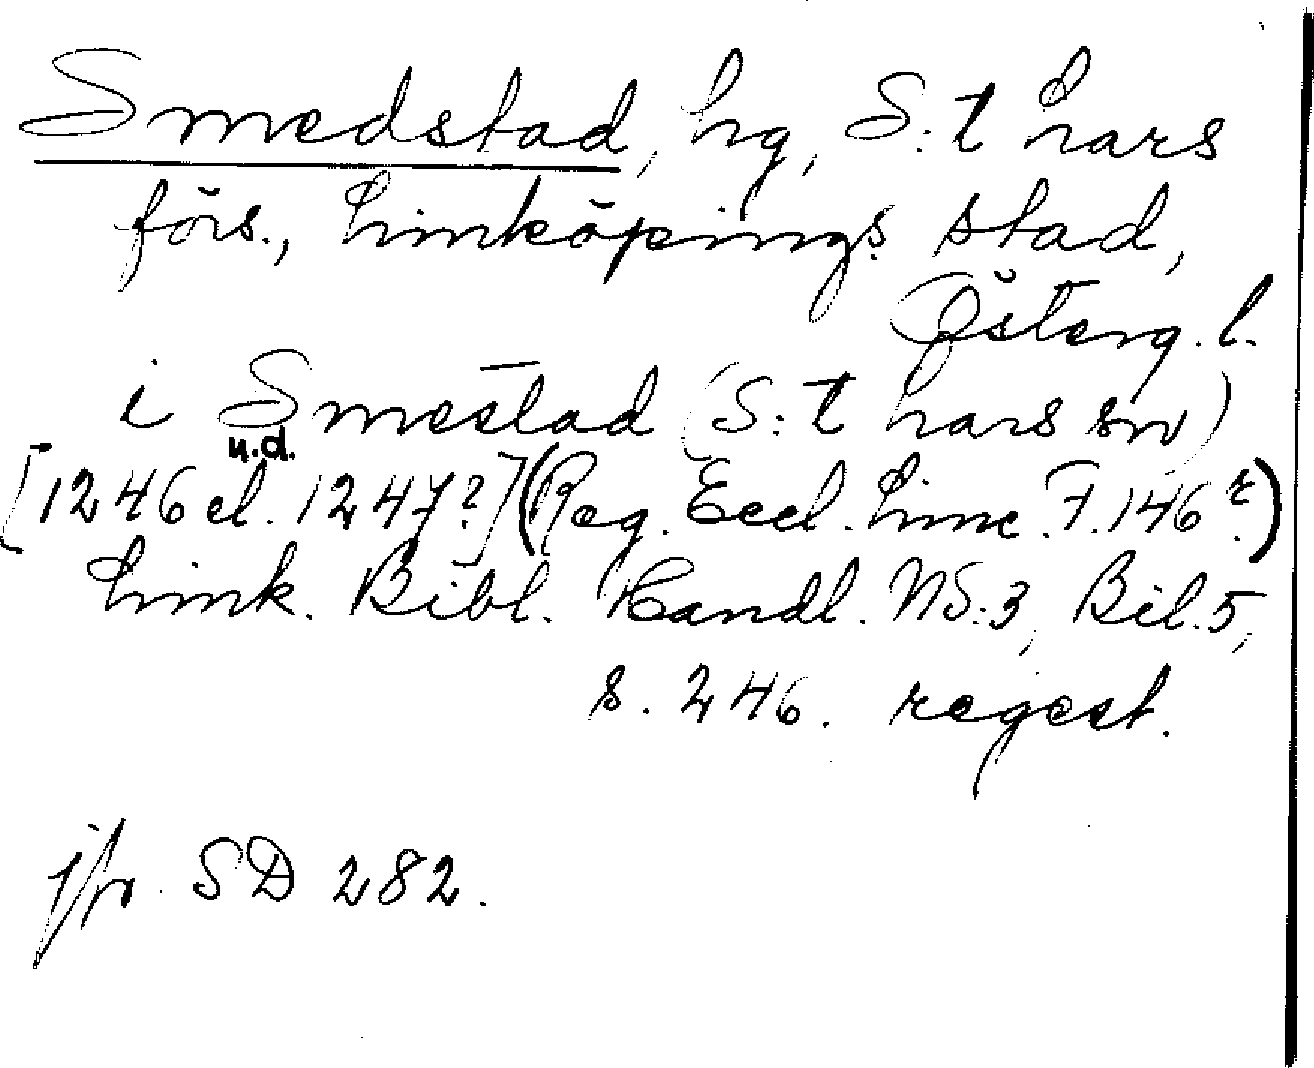 Smedstad, hg, S:t Lars
förs., Linköpings stad,
Österg. l.
i Smestad (S:t Lars sn)
u.d.
[1246 el. 1247?] (Reg. Eccl. Linc. F. 146 r.)
Link. Bibl. Handl. NS:3, Bil. 5,
s. 246. regest.
jfr. SD 282.